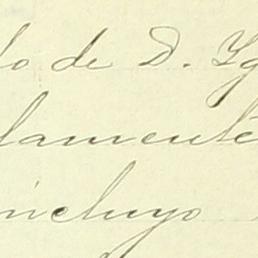 do de D. Yg
lamente
incluyo